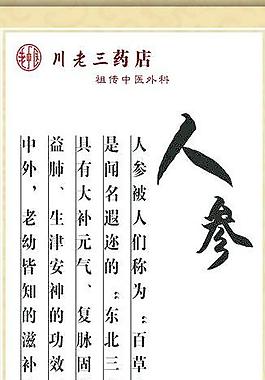 川老三药店
祖传中医外科
人参
人参被人们称为：“百草
是闻名遐迩的“东北三
具有大补元气、复脉固
益肺、生津安神的功效
中外，老幼皆知的滋补